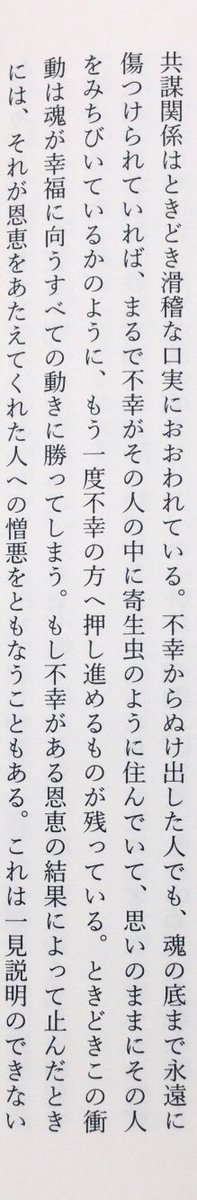 共謀関係はときどき滑稽な口実におおわれている。不幸からぬけ出した人でも、魂の底まで永遠に
傷つけられていれば、まるで不幸がその人の中に寄生虫のように住んでいて、思いのままにその人
をみちびいているかのように、もう一度不幸の方へ押し進めるものが残っている。ときどきこの衝
動は魂が幸福に向うすべての動きに勝ってしまう。もし不幸がある恩恵の結果によって止んだとき
には、それが恩恵をあたえてくれた人への憎悪をともなうこともある。これは一見説明のできない